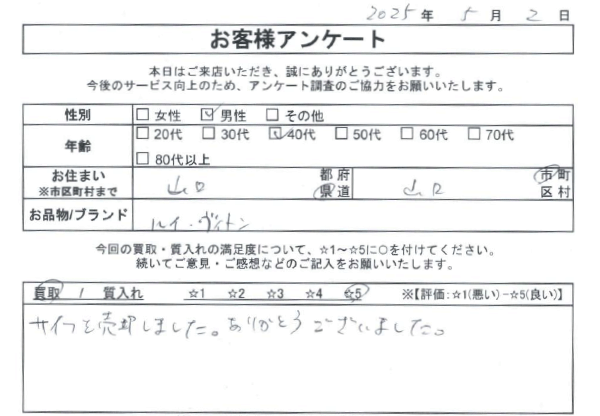 2025年 5月 2日
お客様アンケート
本日はご来店いただき、誠にありがとうございます。
今後のサービス向上のため、アンケート調査のご協力をお願いいたします。
性別 □女性 ☑男性 □その他
年齢 □20代 □30代 ☑40代 □50代 □60代 □70代
□80代以上
お住まい
※市区町村まで
山口 都府県道 山口 市町区村
お品物/ブランド ルイ・ヴィトン
今回の買取・質入れの満足度について、☆1～☆5に○を付けてください。
続いてご意見・ご感想などのご記入をお願いいたします。
買取 / 質入れ ☆1 ☆2 ☆3 ☆4 ☆5 ※【評価:☆1(悪い)－☆5(良い)】
サイフを売却しました。ありがとうございました。